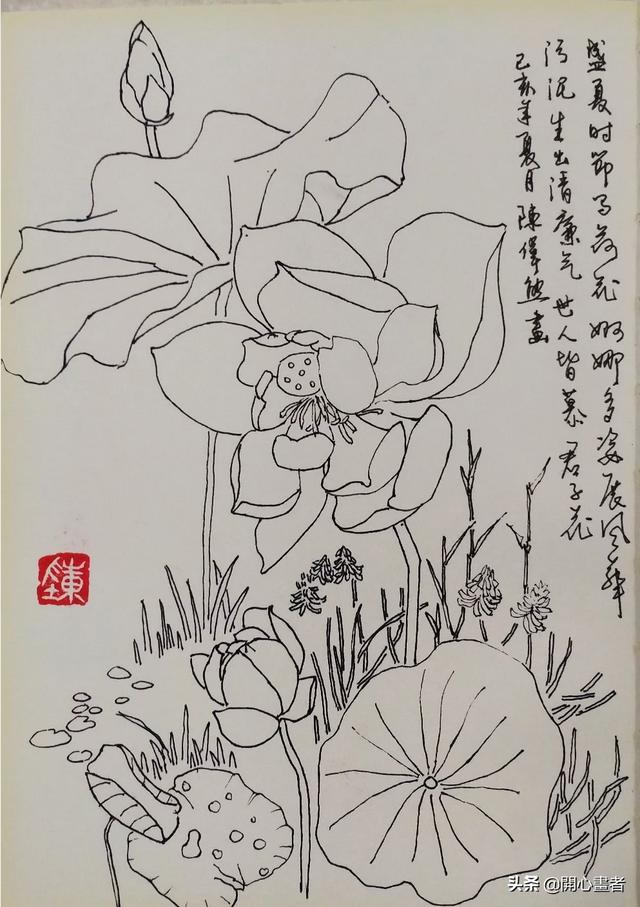 盛夏时節荷花婀娜多姿展风華
污泥生出清廉气世人皆慕君子花
己亥年夏月陳畫
陳
头条 @開心畫者